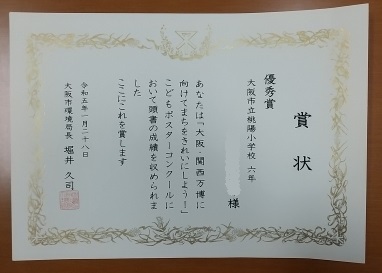 賞状
優秀賞
大阪市立桃陽小学校 六年
様
あなたは「大阪・関西万博に
向けてまちをきれいにしよう!」
こどもポスターコンクールに
おいて頭書の成績を収められま
した
ここにこれを賞します
令和五年一月二十八日
大阪市環境局長 堀井 久司